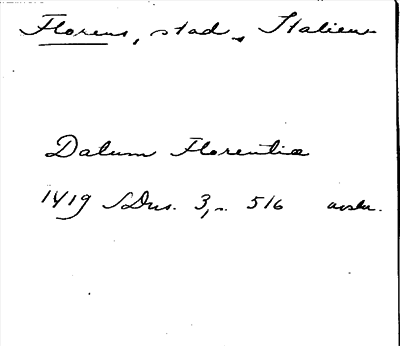 Florens, stad, Italien
Datum Florentiæ
1419 SDns. 3, n. 516 avskr.